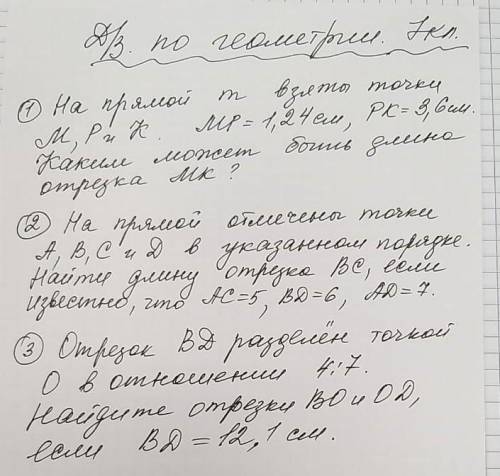 Д/З. по геометрии. 7кл.
① На прямой m взяты точки
М, Р и К. МР = 1,24 см, РК = 3,6 см.
Каким может быть длина
отрезка МК?
② На прямой отмечены точки
А, В, С и D в указанном порядке.
Найти длину отрезка ВС, если
известно, что АС=5, ВD=6, АD=7.
③ Отрезок ВD разделён точкой
О в отношении 4:7.
Найдите отрезки ВО и ОD,
если ВD = 12,1 см.